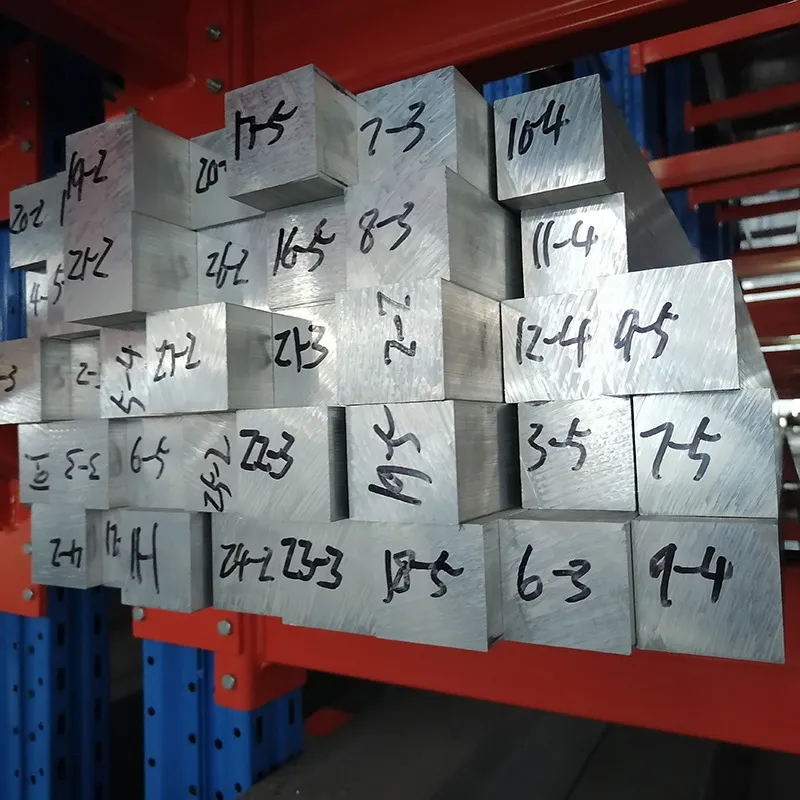 17-5
7-3
10-4
19-2
20-2
20-
8-3
11-4
21-2
26-2
16-5
4-5
2-2
12-4
9-5
27-2
21-3
5-4
-3
2-
19-5
3-5
7-5
3-3
6-5
25-2
22-3
4-2
11-1
24-2
23-3
18-5
6-3
9-4